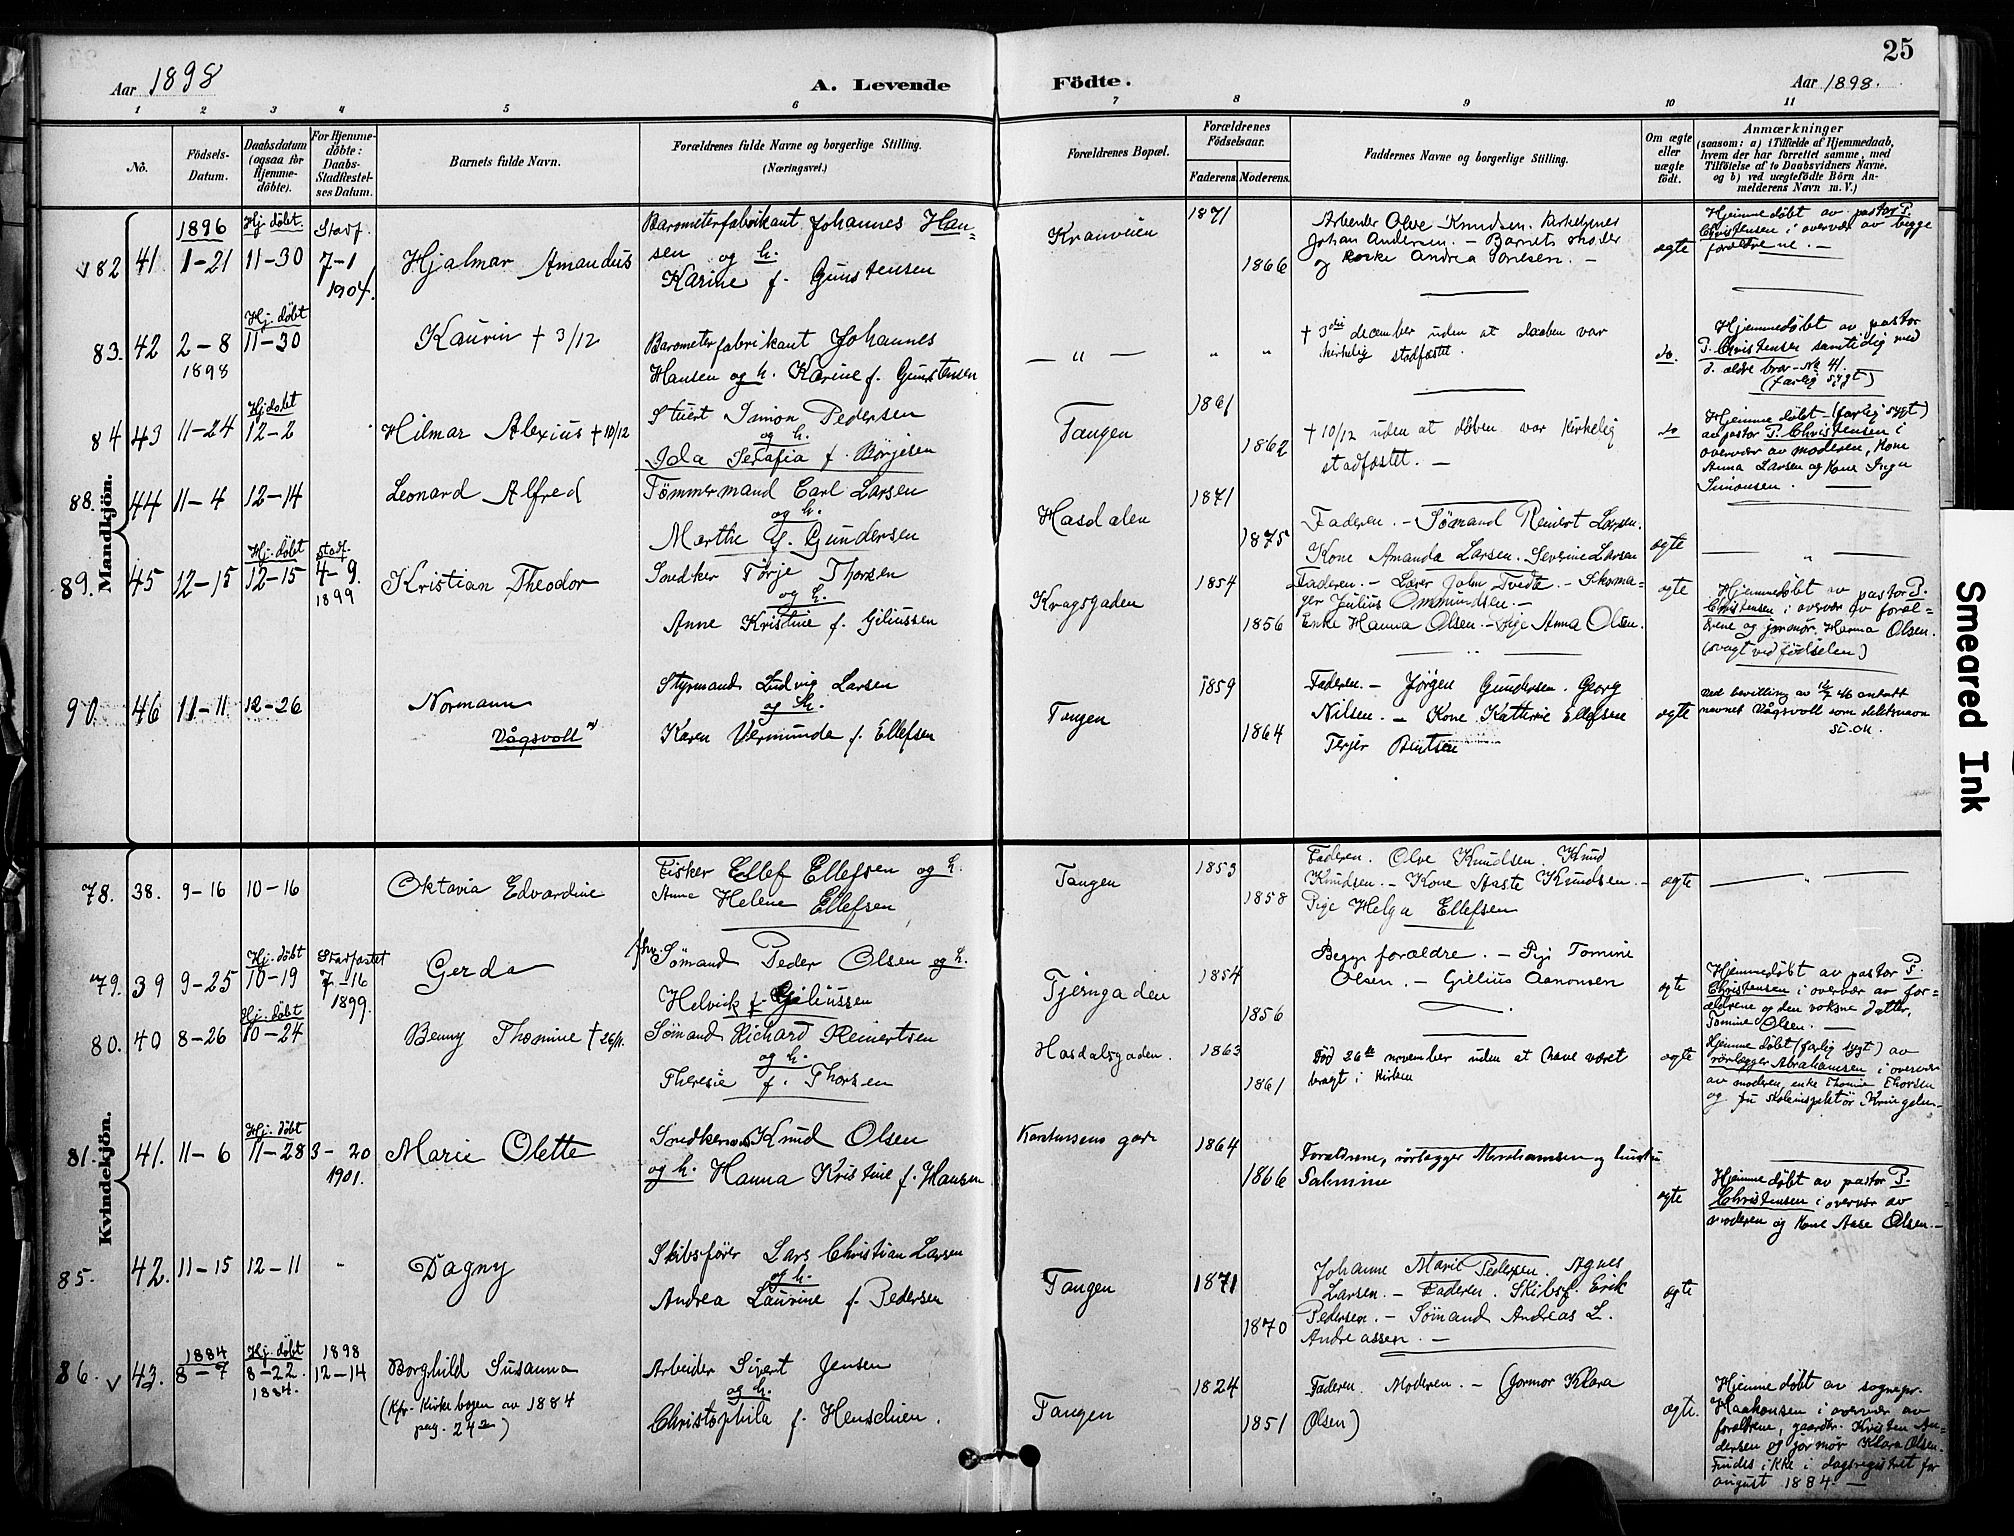 25
Aar 1898
A. Levende
Födte.
Aar 1898.
1 2 3 4 5 6 7 8 9 10 11
No.
Födsels-
Datum.
Daabsdatum
(ogsaa for
Hjemme-
döbte).
For Hjemme-
döbte:
Daabs-
Stadfæstel-
ses Datum.
Barnets fulde Navn.
Forældrenes fulde Navne og borgerlige Stilling.
(Næringsvei.)
Forældrenes Bopæl.
Forældrenes
Födselsaar.
Faderens. Moderens.
Faddernes Navne og borgerlige Stilling.
Om ægte
eller
uægte
födt.
Anmærkninger
(saasom: a) i Tilfælde af Hjemmedaab,
hvem der har forrettet samme, med
Tilföielse af to Daabsvidners Navne.
og b) ved uægtefödte Börn An-
melderens Navn m. V.)
Mandkjön.
82 41 1896
1-21
Hj. döbt
11-30
Stadf.
7-1
1904.
Hjalmar Amandus
Barometerfabrikant Johannes Han-
sen og h.
Karine f. Gunstensen
Kranveien
1871
1866
Arbeider Olve Knudsen. Kirketjener
Johan Andersen. — Barnets moder
og Andrea
ægte
Hjemmedöbt av pastor P.
Christensen i overvær av begge
forældrene. —
83. 42 2-8
1898
Hj. döbt
11-30
Kaurin + 3/12
Barometerfabrikant Johannes
Hansen og h. Karine f. Gunstensen
— " —
" "
+ 3die december uden at daaben var
kirkelig stadfæstet.
do.
Hjemmedöbt av pastor
P. Christensen samtidig med
s. ældre bror No 41.
(farlig sygt)
84 43 11-24
Hj döbt
12-2
Hilmar Alexius + 10/12
Stuert Simon Pedersen
og h.
Ida Serafia f. Børjesen
Tangen
1861
1862
+ 10/12 uden at døben var Kirkelig
stadfæstet. —
do
Hjemmedöbt — (farlig sygt)
av pastor P. Christensen i
overvær av moderen, Kone
Anna Larsen og Kone Inga
Simonsen.
88. 44 11-4 12-14
Leonard Alfred
Tømmermand Carl Larsen
og h.
Marthe f. Gundersen
Hasdalen
1871
1875
Faderen. — Sømand Reinert Larsen.
Kone Amanda Larsen. Severine Larsen
ægte
— " —
89. 45 12-15
Hj. döbt
12-15
stadf.
4-9.
1899
Kristian Theodor
Snedker Torje Thorsen
og h.
Anne Kristine f. Giliussen
Kragsgaden
1854
1856
Faderen. — Lærer John Tvedte. — Skoma-
ger Julius Ommundsen. —
Enke Hanna Olsen. — Pige Anna Olsen.
ægte
Hjemmedöbt av pastor P.
Christensen i overvær av foræl-
drene og jormør Hanna Olsen.
(svagt ved fødselen)
90. 46 11-11 12-26
Normann
Vågsvoll
Styrmand Ludvig Larsen
og h.
Karen Vermunda f. Ellefsen
Tangen
1859
1864
Faderen. — Jørgen Gundersen. Georg
Nilsen. — Kone Kathrine Ellefsen
Terjer Bentsen
ægte
Ved bevilling av 46 antatt
navnet Vågsvoll som slektsnavn
Kvindekjön.
78. 38. 9-16 10-16
Oktavia Edvardine
Fisker Ellef Ellefsen og h.
Anne Helene Ellefsen
Tangen
1853
1858
Faderen. Olve Knudsen. Knud
Knudsen. — Kone Aaste Knudsen. —
Pige Helga Ellefsen
ægte
— " —
79. 39 9-25
Hj. döbt
10-19
Stadfæstet
7-16
1899.
Gerda
Sømand Peder Olsen og h.
Helvik f. Giliussen
Tjerngaden
1854
1856
Begge forældre. — Pige Tomine
Olsen. — Gillius Aanonsen
ægte
Hjemmedöbt av pastor P.
Christensen i overvær av for-
ældrene og den voksne datter,
Tomine Olsen. —
80. 40 8-26
Hj. döbt
10-24
Benny Thomine + 26/11.
Sømand Richard Reinertsen
og h.
Theresie f. Thorsen
Hasdalsgaden.
1863
1861
Död 26de november uden at have været
bragt i Kirken
ægte
Hjemmedöbt (farlig sygt) av
rørlægger Abrahamsen i overvær
av moderen, enke Thomine Thorsen
og fru skoleinspektör
81. 41. 11-6
Hj. döbt
11-28
3-20
1901.
Marie Olette
Snedkersv. Knud Olsen
og h. Hanna Kristine f. Hansen
Karstensens gade
1864
1866
Forældrene, rørlægger Abrahamsen og hustru
Salmine
ægte
Hjemmedöbt av pastor P.
Christensen i overvær av
moderen og Kone Aase Olsen. —
85. 42. 11-15 12-11 "
Dagny
Skibsfører Lars Christian Larsen
og h.
Andrea Laurine f. Pedersen
Tangen
1871
1870
Johanne Marie Pedersen. Agnes
Larsen. — Faderen. Skibsf. Erik
Pedersen. — Sømand Andreas L.
Andreassen. —
ægte
86. 43. 1884
8-7
Hj. döbt
8-22.
1884.
1898
12-14
Borghild Susanna
(Kfr. Kirkebogen av 1884
pag. 24)
Arbeider Sivert Jensen
og h.
Christophila f. Henschien.
Tangen
1824
1851
Faderen. Moderen. — (Jormor Klara
Olsen)
ægte.
Hjemmedöbt av sognepr.
Haakonsen i overvær av
forældrene, gaardbr. Kristen An-
dersen og jormør Klara Olsen.
Findes ikke i dagsregistret for
august 1884 —
Smeared Ink